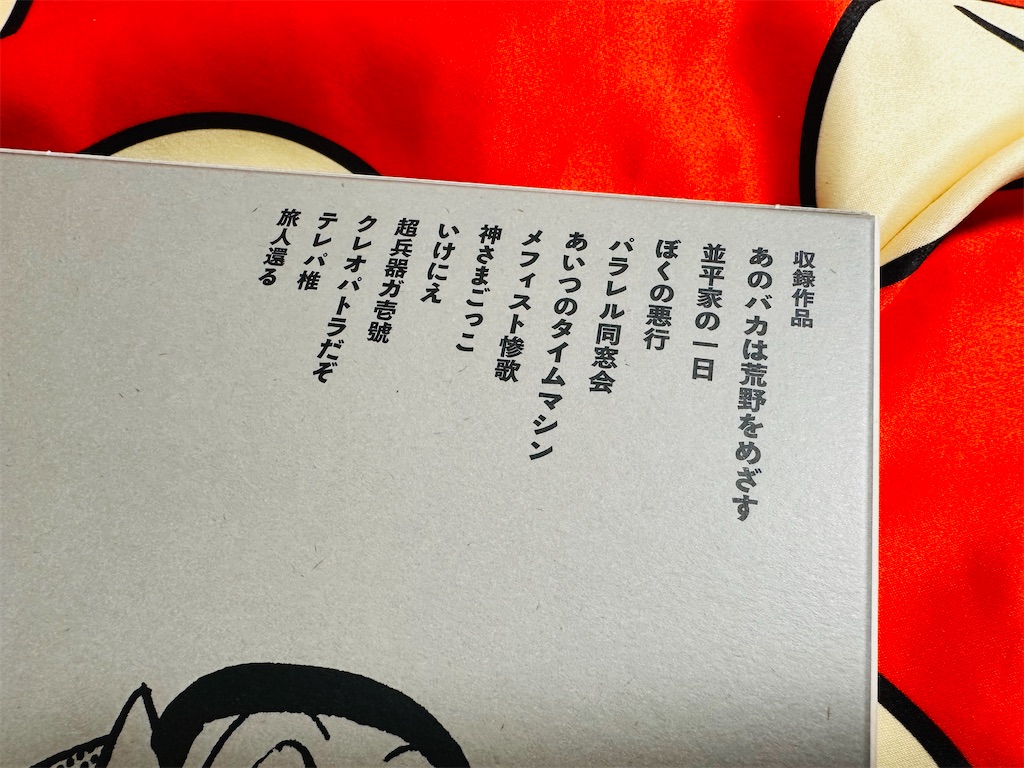 収録作品
あのバカは荒野をめざす
並平家の一日
ぼくの悪行
パラレル同窓会
あいつのタイムマシン
メフィスト惨歌
神さまごっこ
いけにえ
超兵器ガ壱號
クレオパトラだぞ
テレパ椎
旅人還る